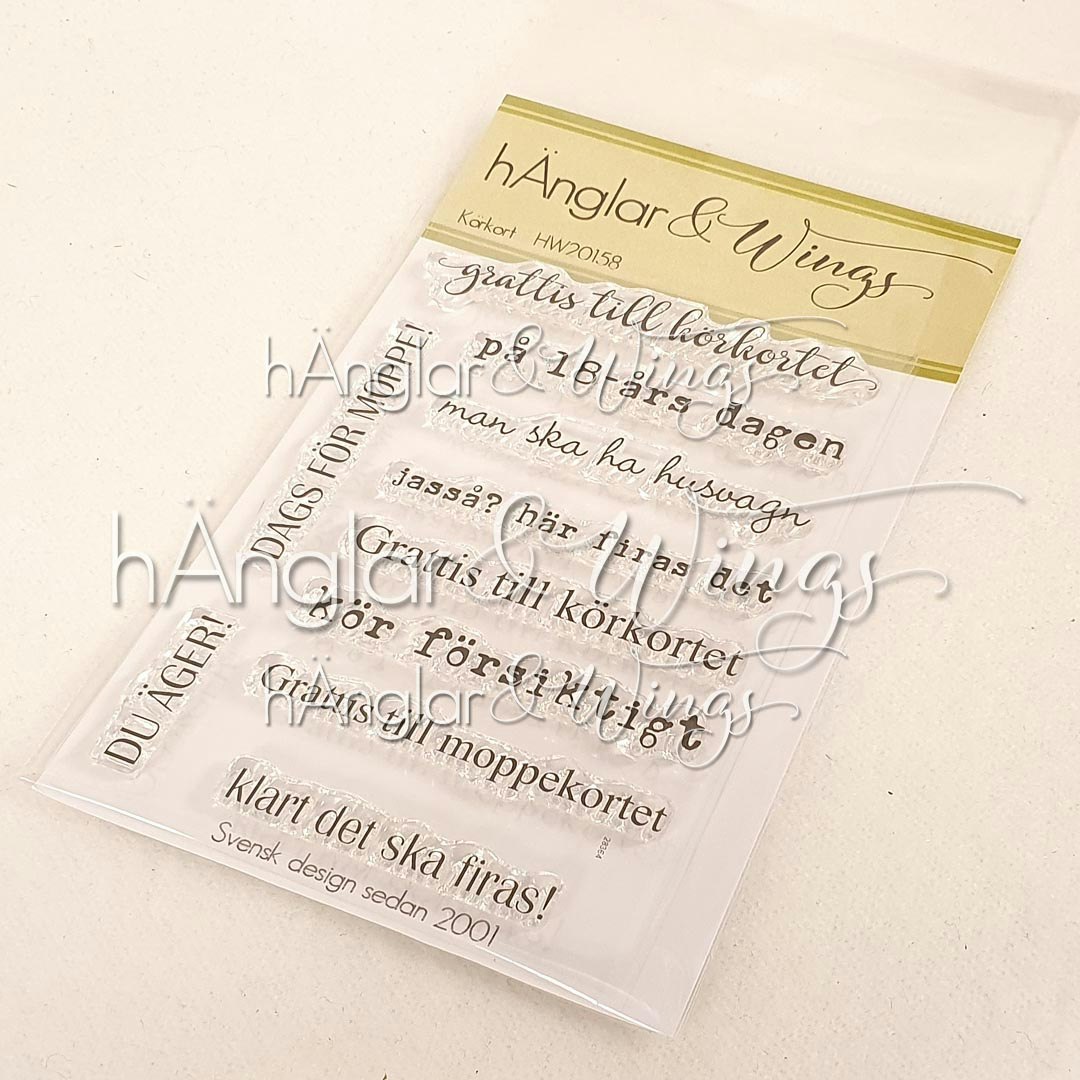 hÄnglar & Wings
Körkort HW20158
grattis till körkortet
på 18-års dagen
man ska ha husvagn
jasså? här firas det
Grattis till körkortet
kör försiktigt
Grattis till moppekortet
klart det ska firas!
DAGS FÖR MOPPE!
DU ÄGER!
Svensk design sedan 2001
hÄnglar & Wings
hÄnglar & Wings
hÄnglar & Wings